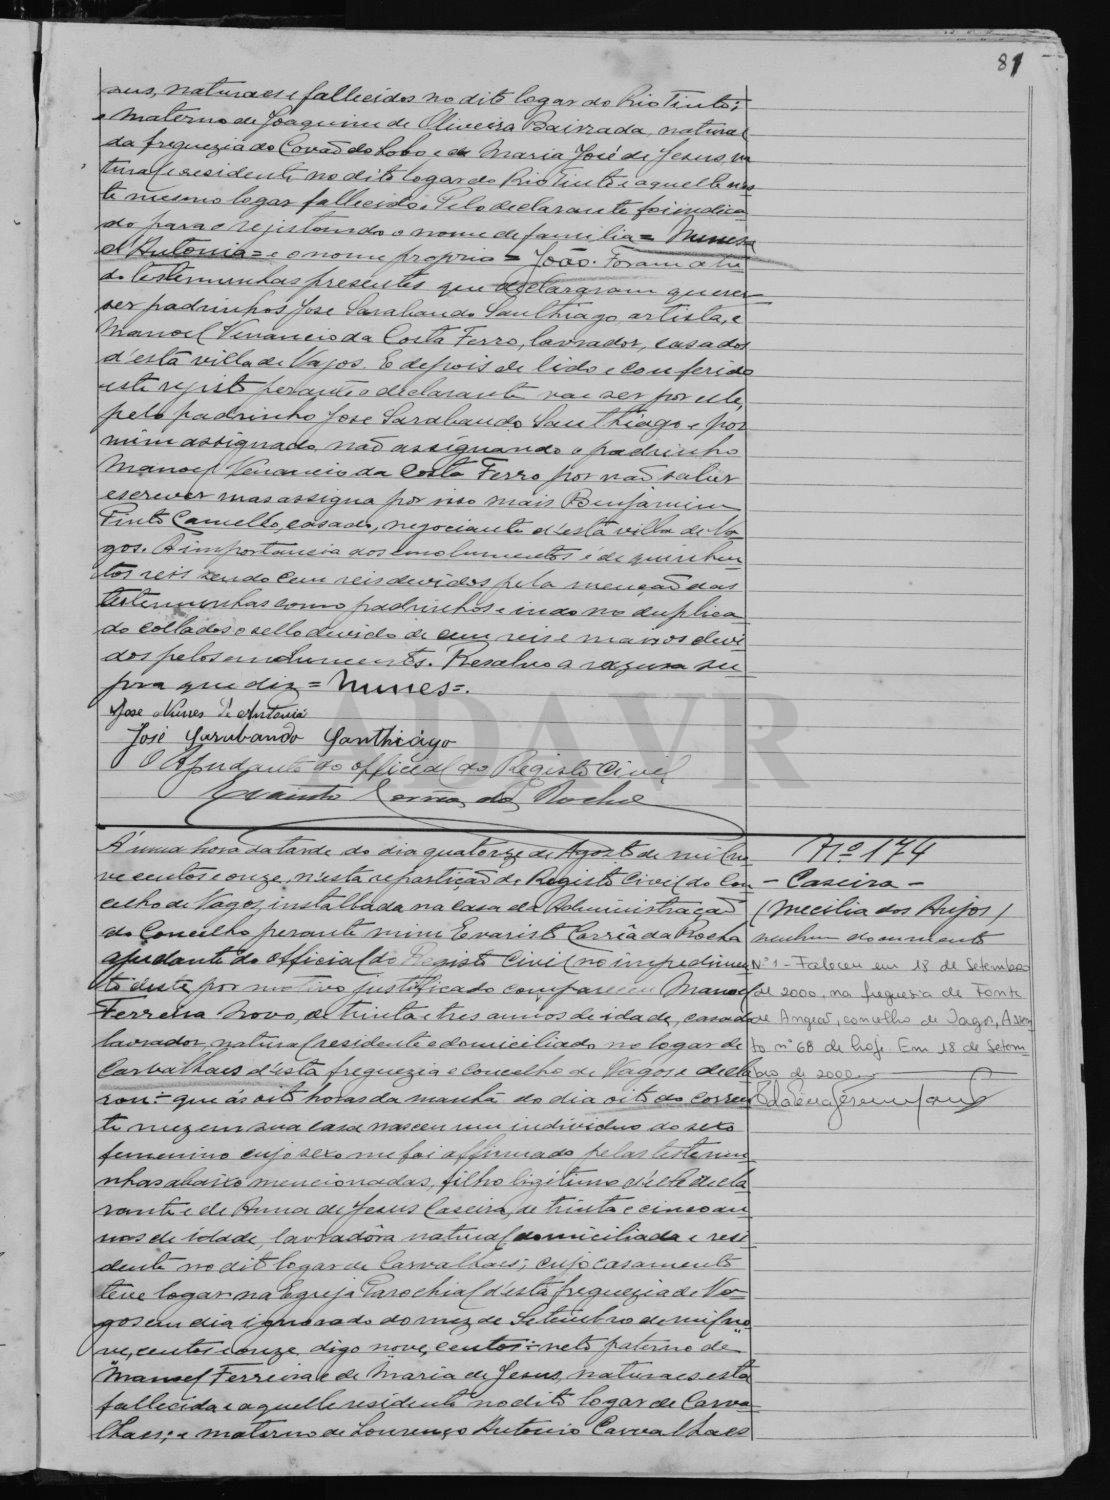 81
sus, naturaes e fallecidos no dito logar do Rio Tinto;
e materno de Joaquim de Oliveira Bairrada, natural
da freguezia do Covão do Lobo e de Maria José de Jesus, na
tural e residente no dito logar do Rio Tinto e aquelle nes
te mesmo logar fallecido. Pelo declarante foi indica
do para o registando o nome de familia = Nunes
d'Antonia = e o nome proprio = João. Foram a tu
do testemunhas presentes que declararam querer
ser padrinhos José Sarabando Santhiago, artista, e
Manoel Venancio da Costa Ferro, lavrador, casados
d'esta villa de Vagos. E depois de lido e conferido
este registo perante o declarante vae ser por elle,
pelo padrinho José Sarabando Santhiago e por
mim assignado, não assignando o padrinho
Manoel Venancio da Costa Ferro por não saber
escrever mas assigna por isso mais Benjamim
Pinto Camello, casado, negociante d'esta villa de Va-
gos. A importancia dos emolumentos é de quinhen
tos reis sendo cem reis devidos pela menção das
testemunhas como padrinhos e indo no duplica
do collados o sello devido de cem reis e mais os devi
dos pelos emolumentos. Resalvo a razura su
pra que diz = Nunes =.
José Nunes d'Antonia
José Sarabando Santhiago
O Ajudante do official do Registo Civil
Evaristo Corrêa da Rocha
A' uma hora da tarde do dia quatorze de Agosto de mil no
ve centos e onze, n'esta repartição do Registo Civil do Con
celho de Vagos, installada na casa da Administração
do Concelho perante mim Evaristo Corrêa da Rocha
ajudante do official do Registo Civil no impedimen
to d'este, por motivo justificado compareceu Manoel
Ferreira Novo, de trinta e tres annos de idade, casado
lavrador, natural residente e domiciliado no logar de
Carvalhaes d'esta freguezia e concelho de Vagos e decla
rou:- que ás oito horas da manhã do dia oito do corren
te mez em sua casa nasceu um individuo do sexo
femenino cujo sexo me foi affirmado pelas testemu
nhas abaixo mencionadas, filho legitimo d'elle decla
rante e de Anna de Jesus Caseira, de trinta e cinco an
nos de idade, lavradôra natural domiciliada e resi
dente no dito logar de Carvalhaes; cujo casamento
teve logar na Egreja Parochial d'esta freguezia de Va-
gos em dia ignorado do mez de Setembro de mil no
ve, centos e onze, digo nove, centos:- neto paterno de
Manoel Ferreira e de Maria de Jesus, naturaes esta
fallecida e aquelle residente no dito logar de Carva-
lhaes; e materno de Lourenço Antonio Carvalhaes
Nº 174
- Caseira -
(Mecilia dos Anjos)
nenhum documento
Nº 1 - Faleceu em 18 de Setembro
de 2000, na freguesia de Fonte
de Angeão, concelho de Vagos, Assen-
to nº 68 de hoje. Em 18 de Setem-
bro de 2000.
ADAVR